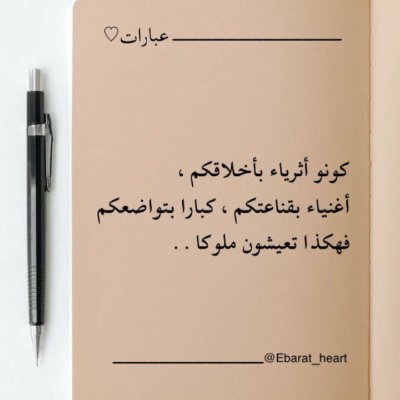 عبارات♡
كونو أثرياء بأخلاقكم ،
أغنياء بقناعتكم ، كبارا بتواضعكم
فهكذا تعيشون ملوكا . .
@Ebarat_heart